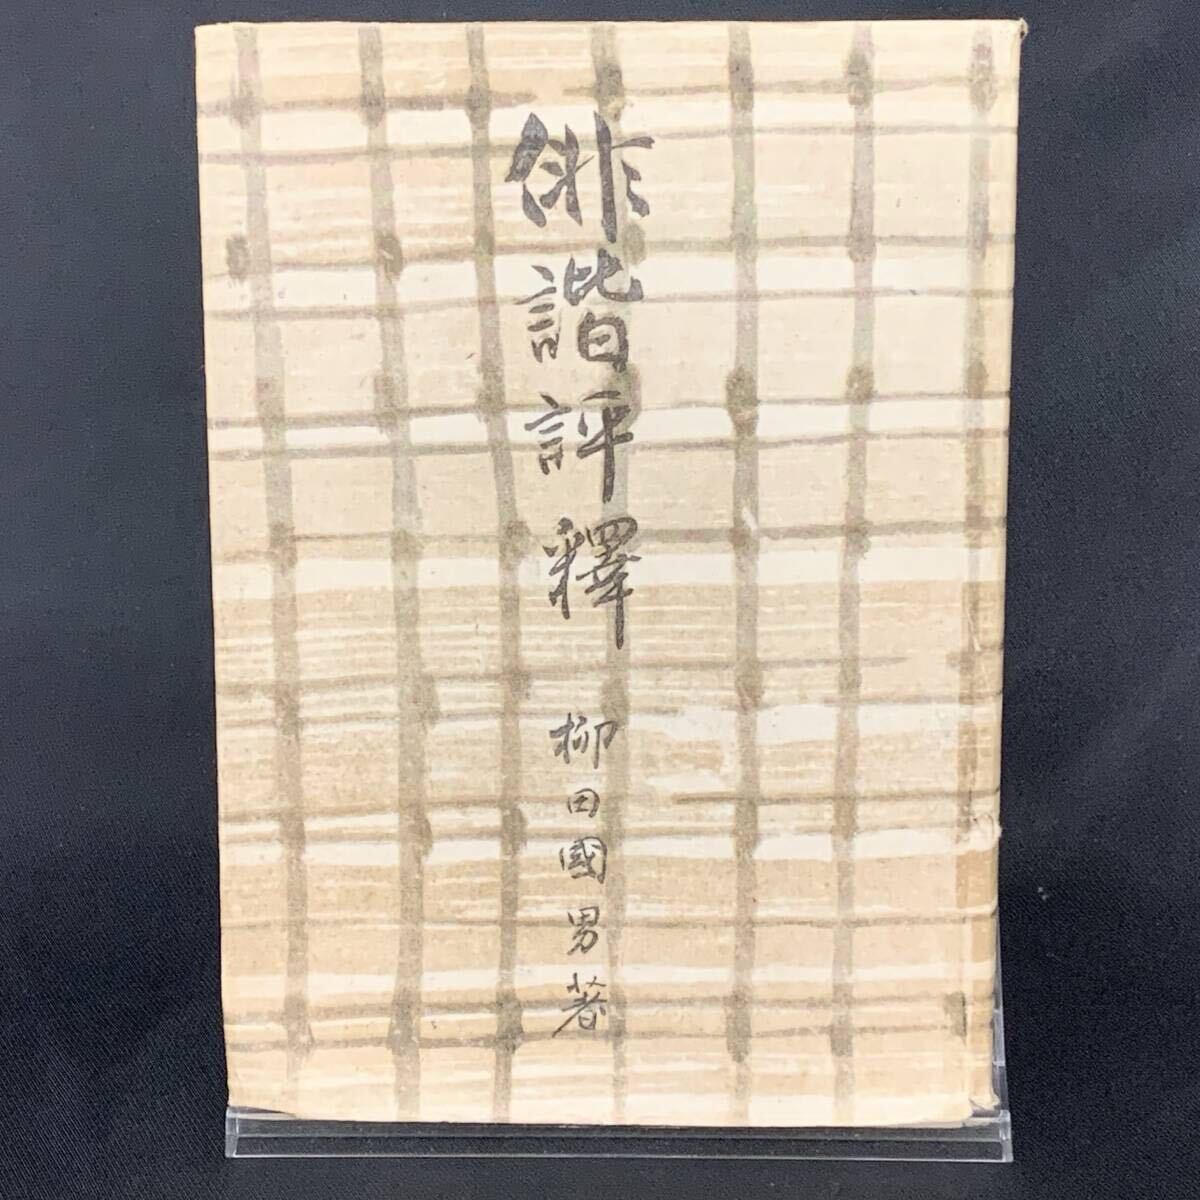 俳諧評釋
柳田國男著